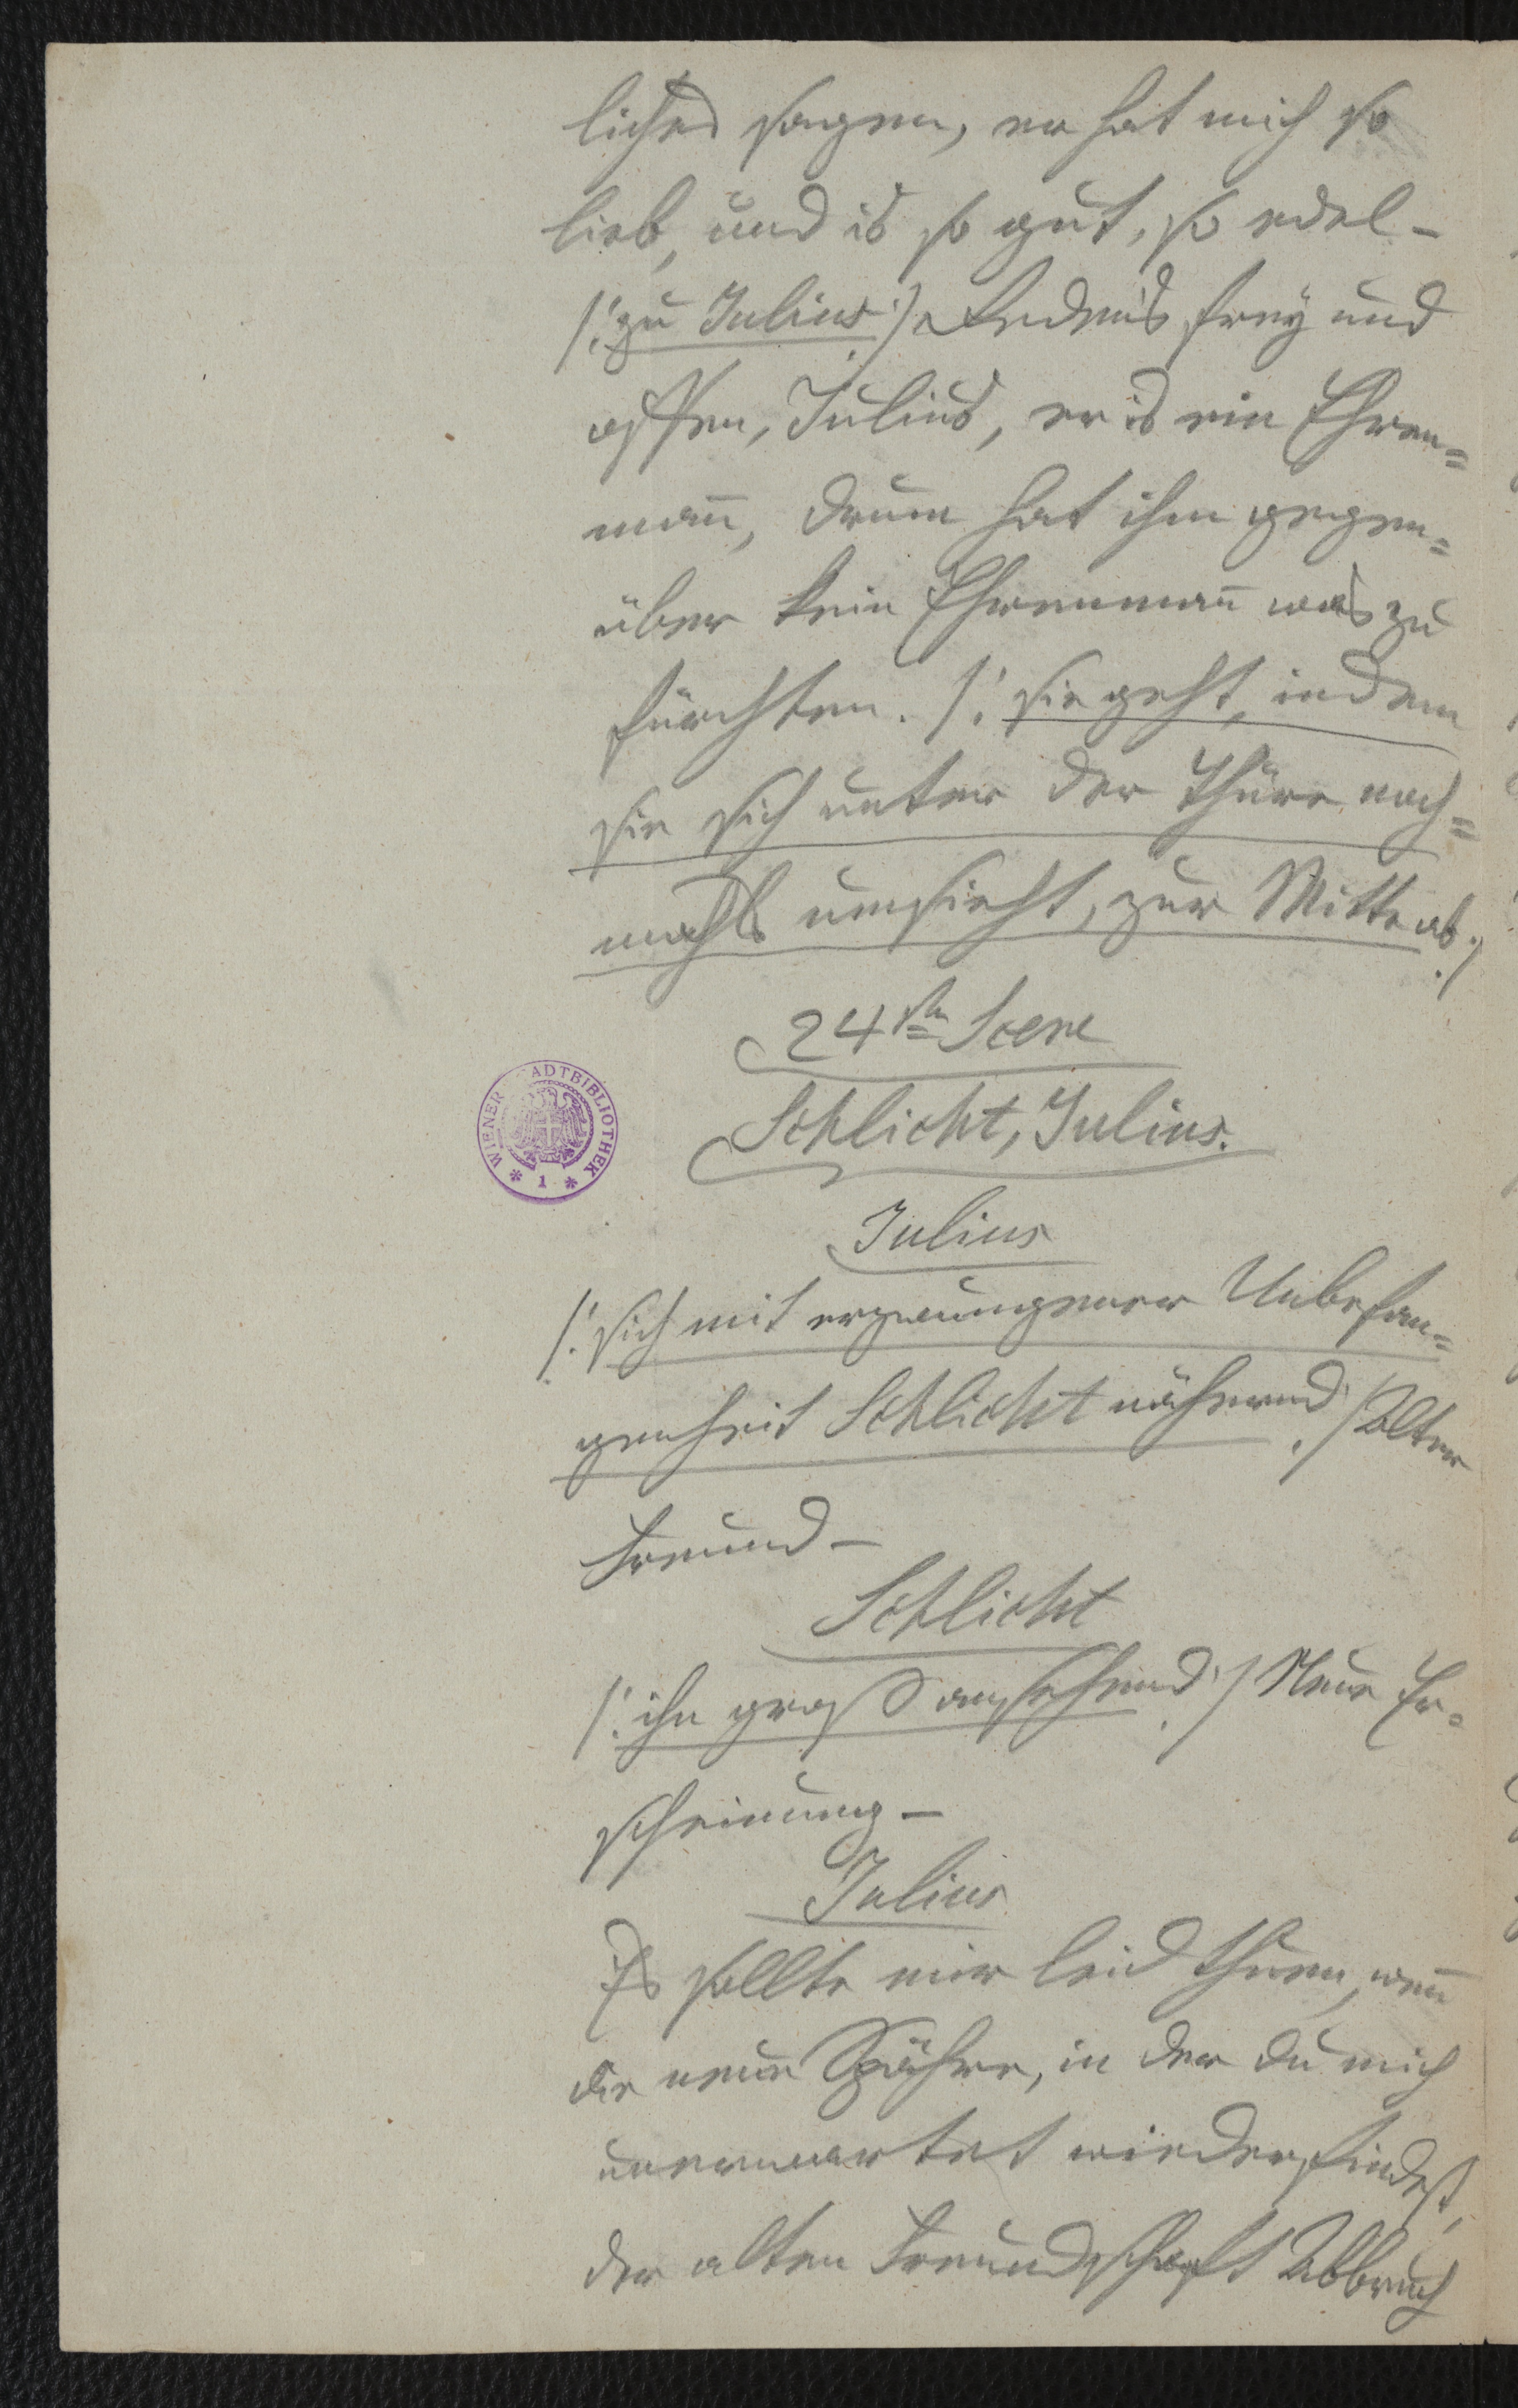 liches sagen, er hat mich so
lieb, und is so gut, so edel –
/: zu Julius :/ Reden's frey und
offen, Julius, er is ein Ehren=
man̄, drum hat ihm gegen=
über kein Ehrenman̄ was zu
fürchten. /: sie geht, indem
sie sich unter der Thüre noch=
mahls umsieht, zur Mitte ab :/
24ste Scene
Schlicht, Julius.
Julius
/: sich mit erzwungener Unbefan=
genheit Schlicht nähernd :/ Alter
Freund –
Schlicht
/: ihn groß ansehend :/ Neue Er=
scheinung –
Julius
Es sollte mir leid thuen, wen̄
die neue Spähre, in der du mich
unerwartet wiederfindest,
der alten Freundschaft Abbruch
WIENER STADTBIBLIOTHEK
* 1 *